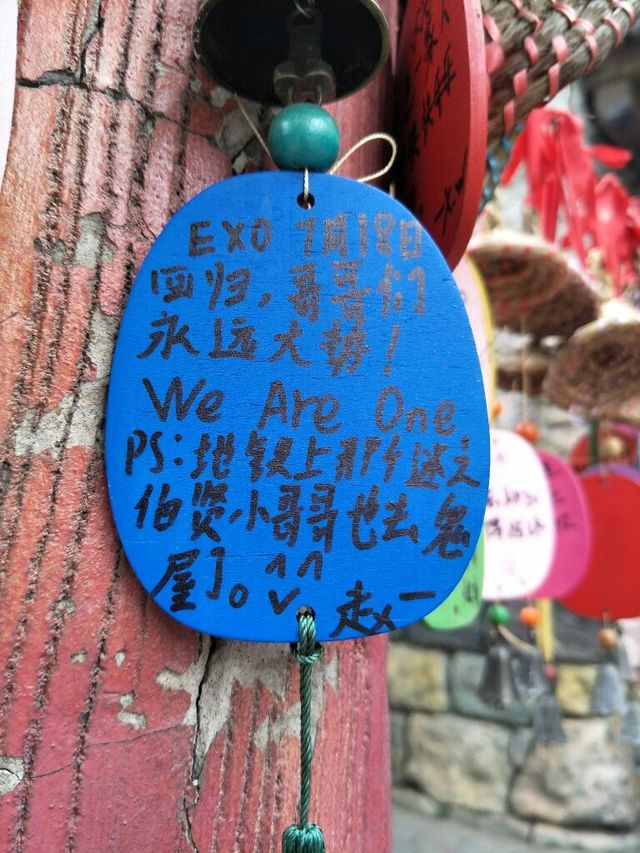 EXO 7月18日
回归，哥哥们
永远大势！
We Are One
PS：地铁上那个迷之
伯贤小哥哥也去鬼
屋了。^v^
赵一